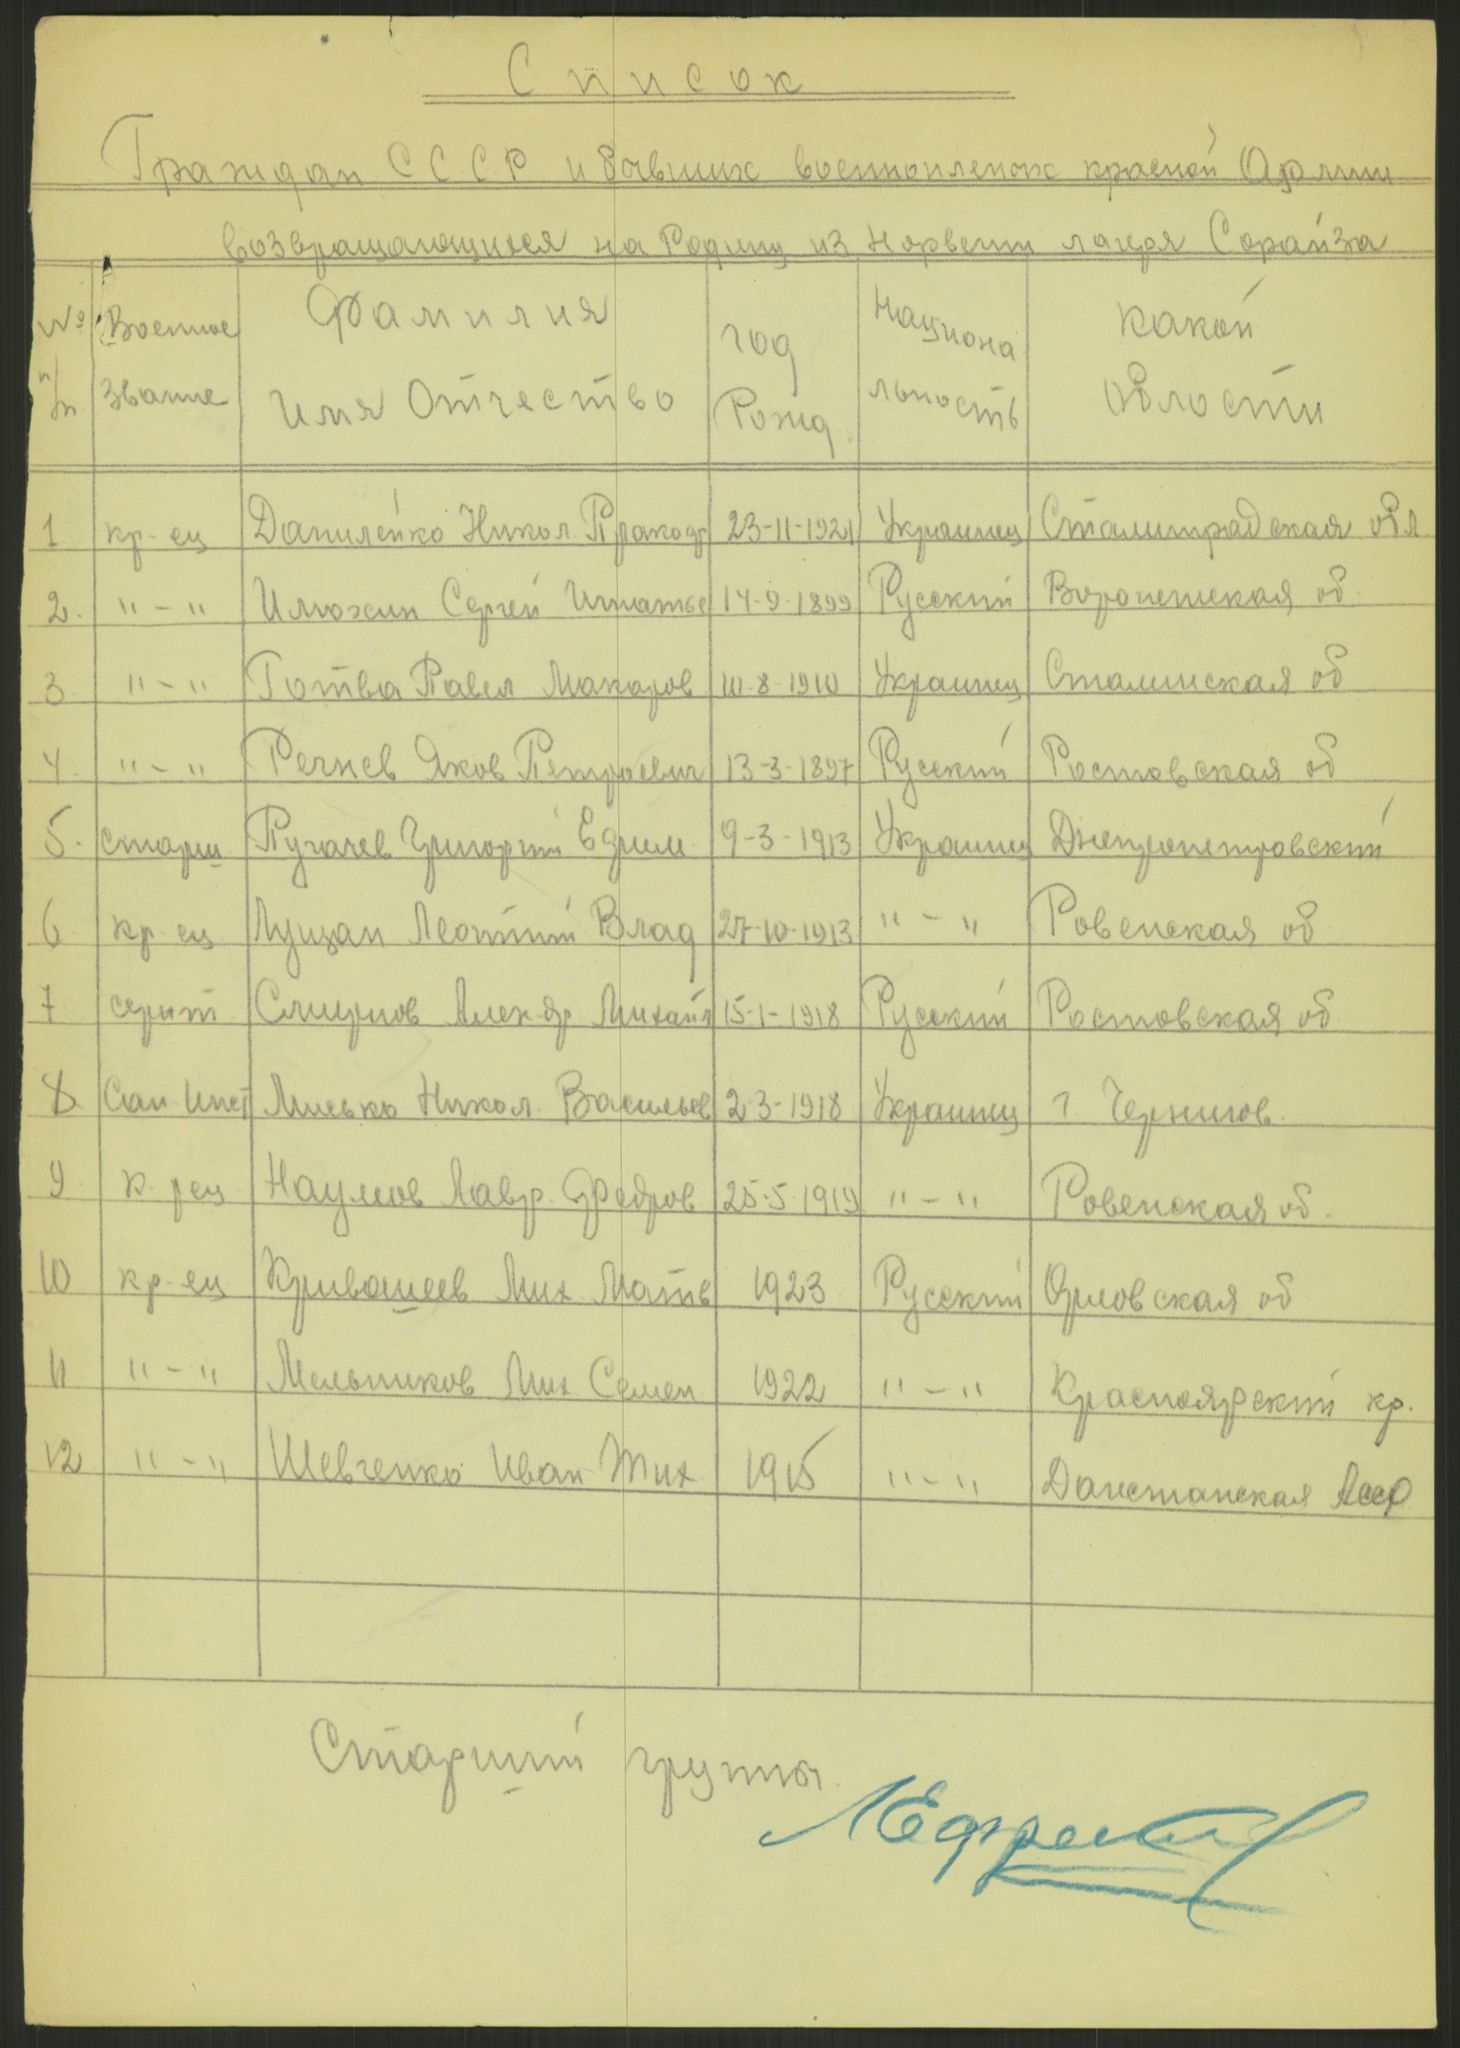 Список
Граждан СССР и бывших военопленых красной Армии
возвращающихся на Родину из Норвегии лагеря Сорайза
№ п/п Военное звание Фамилия Имя Отчество год Рожд Национальность какой области
1 кр-ец Данилейко Никол Пракоф 23-11-1921 Украинец Сталинградская обл
2. "-" Илюхин Сергей Игнатье 14-9-1899 Русский Воронежская об.
3 "-" Готва Павел Макаров 10-8-1910 Украинец Сталинская об
4. "-" Речнев Яков Петрович 13-3-1897 Русский Ростовская об
5. старш Пугачев Григорий Ефим 9-3-1913 Украинец Днепропетровский
6 кр-ец Луцан Леонтий Влад 27-10-1913 "-" Ровенская об
7 сержт Смирнов Алек-др Михайл 15-1-1918 Русский Ростовская об
8. Сан-Инст Мисько Никол. Васильев 2-3-1918 Украинец г Чернигов.
9 к-рец Наумов Лавр. Федров 25-5-1919 "-" Ровенская об.
10 кр-ец Кривашеев Мих Матв 1923 Русский Орловская об
11 "-" Мельников Мих Семен 1922 "-" Красноярский кр.
12 "-" Шевченко Иван Тих 1915 "-" Дагестанская Асср
Старший групы